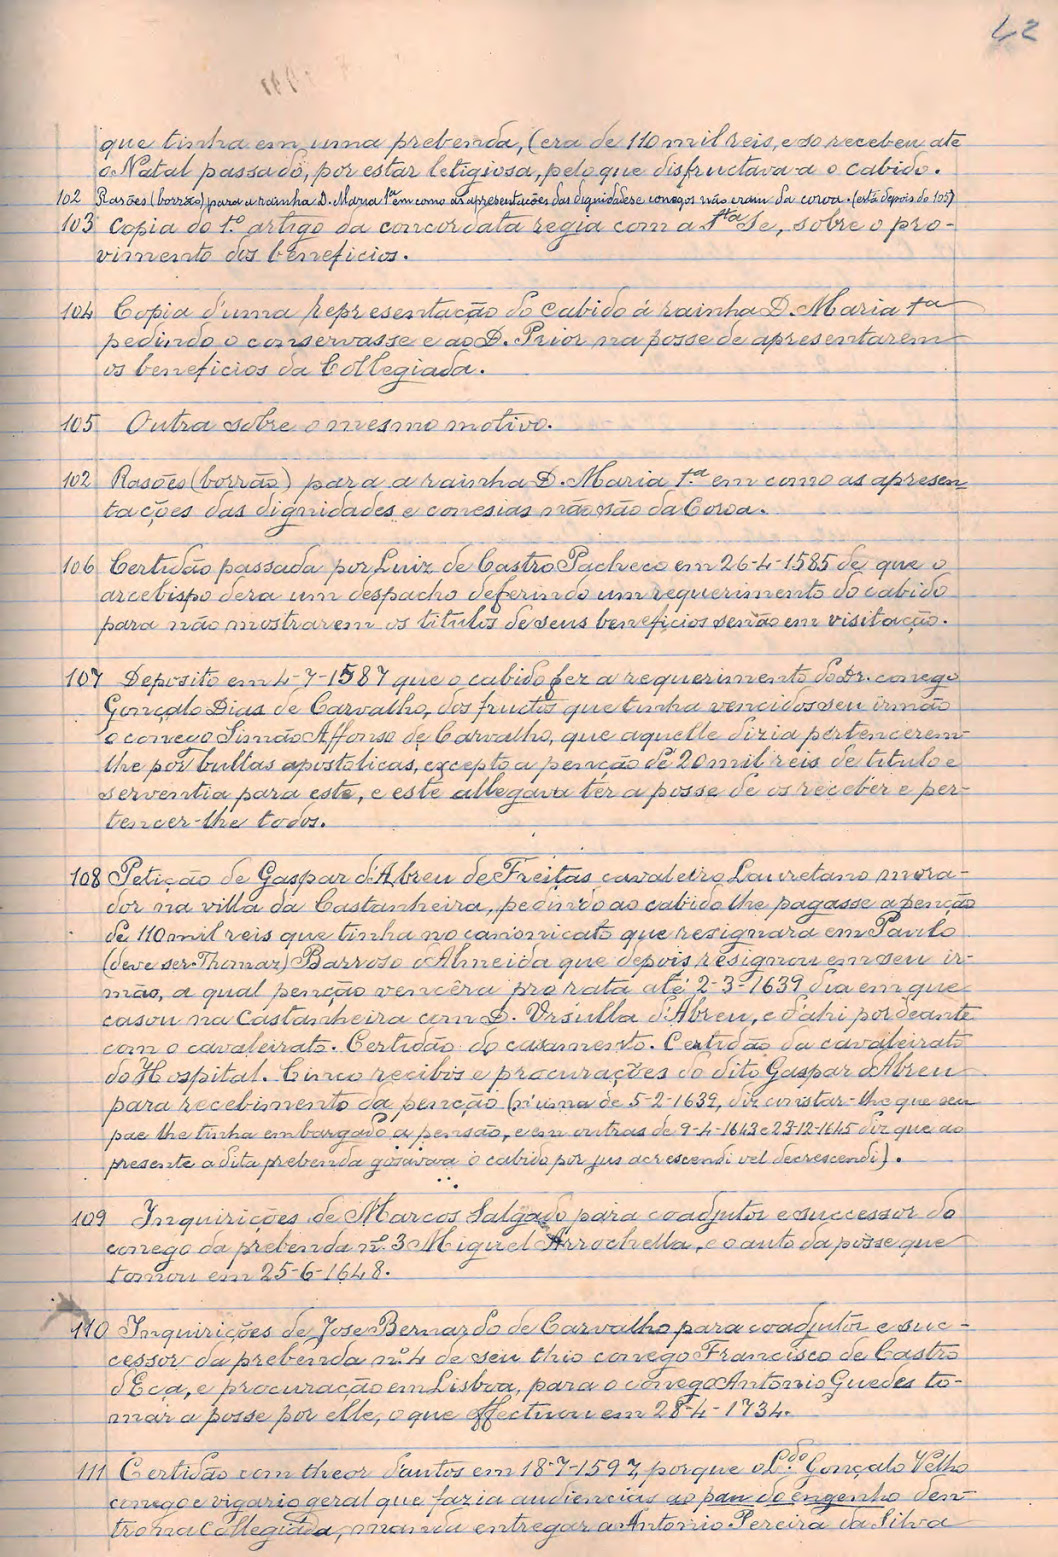 42
que tinha em uma prebenda, (era de 110 mil reis, e só recebeu até
o Natal passado, por estar letigiosa, pelo que disfructava-a o cabido.
102 Rasões (borrão) para a rainha D. Maria 1ª em como as apresentações das dignidades e conegos não eram da coroa. (está depois do 105)
103 Copia do 1.º artigo da concordata regia com a Stª Se, sobre o pro-
vimento dos beneficios.
104 Copia d'uma representação do cabido á rainha D. Maria 1ª
pedindo o conservasse e ao D. Prior na posse de apresentarem
os beneficios da Collegiada.
105 Outra sobre o mesmo motivo.
102 Rasões (borrão) para a rainha D. Maria 1.ª em como as apresen-
tações das dignidades e conesias não são da Coroa.
106 Certidão passada por Luiz de Castro Pacheco em 26-4-1585 de que o
arcebispo dera um despacho deferindo um requerimento do cabido
para não mostrarem os titulos de seus beneficios senão em visitação.
107 Deposito em 4-7-1587 que o cabido fez a requerimento do Dr. conego
Gonçalo Dias de Carvalho, dos fructos que tinha vencidos seu irmão
o conego Simão Affonso de Carvalho, que aquelle dizia pertencerem-
lhe por bullas apostolicas, excepto a penção de 20 mil reis de titulo e
serventia para este, e este allegava ter a posse de os receber e per-
tencer-lhe todos.
108 Petição de Gaspar d'Abreu de Freitas cavaleiro Lauretano mora-
dor na villa da Castanheira, pedindo ao cabido lhe pagasse a penção
de 110 mil reis que tinha no canonicato que resignara em Paulo
(deve ser Thomaz) Barroso d'Almeida que depois resignou em seu ir-
mão, a qual penção vencêra pro rata até 2-3-1639 dia em que
casou na Castanheira com D. Ursulla d'Abreu, e d'ahi por deante
com o cavaleirato. Certidão do casamento. Certidão da cavaleirato
do Hospital. Cinco recibos e procurações do dito Gaspar d'Abreu
para recebimento da penção (n'uma de 5-2-1639, diz constar-lhe que seu
pae lhe tinha embargado a pensão, e em outras de 9-4-1643 e 23-12-1645 diz que ao
presente a dita prebenda gosavava o cabido por jus acrescendi vel decrescendi).
109 Inquirições de Marcos Salgado para coadjutor e successor do
conego da prebenda nº 3 Miguel Arrochella, e o auto da posse que
tomou em 25-6-1648.
110 Inquirições de Jose Bernardo de Carvalho para coadjutor e suc-
cessor da prebenda nº 4 de seu thio conego Francisco de Castro
d'Eça, e procuração em Lisboa, para o conego Antonio Guedes to-
mar a posse por elle, o que effectuou em 28-4-1734.
111 Certidão com theor d'autos em 18-7-1597, porque o L.do Gonçalo Velho
conego e vigario geral que fazia audiencias ao pau do engenho den-
tro na Collegiada, mandou entregar a Antonio Pereira da Silva